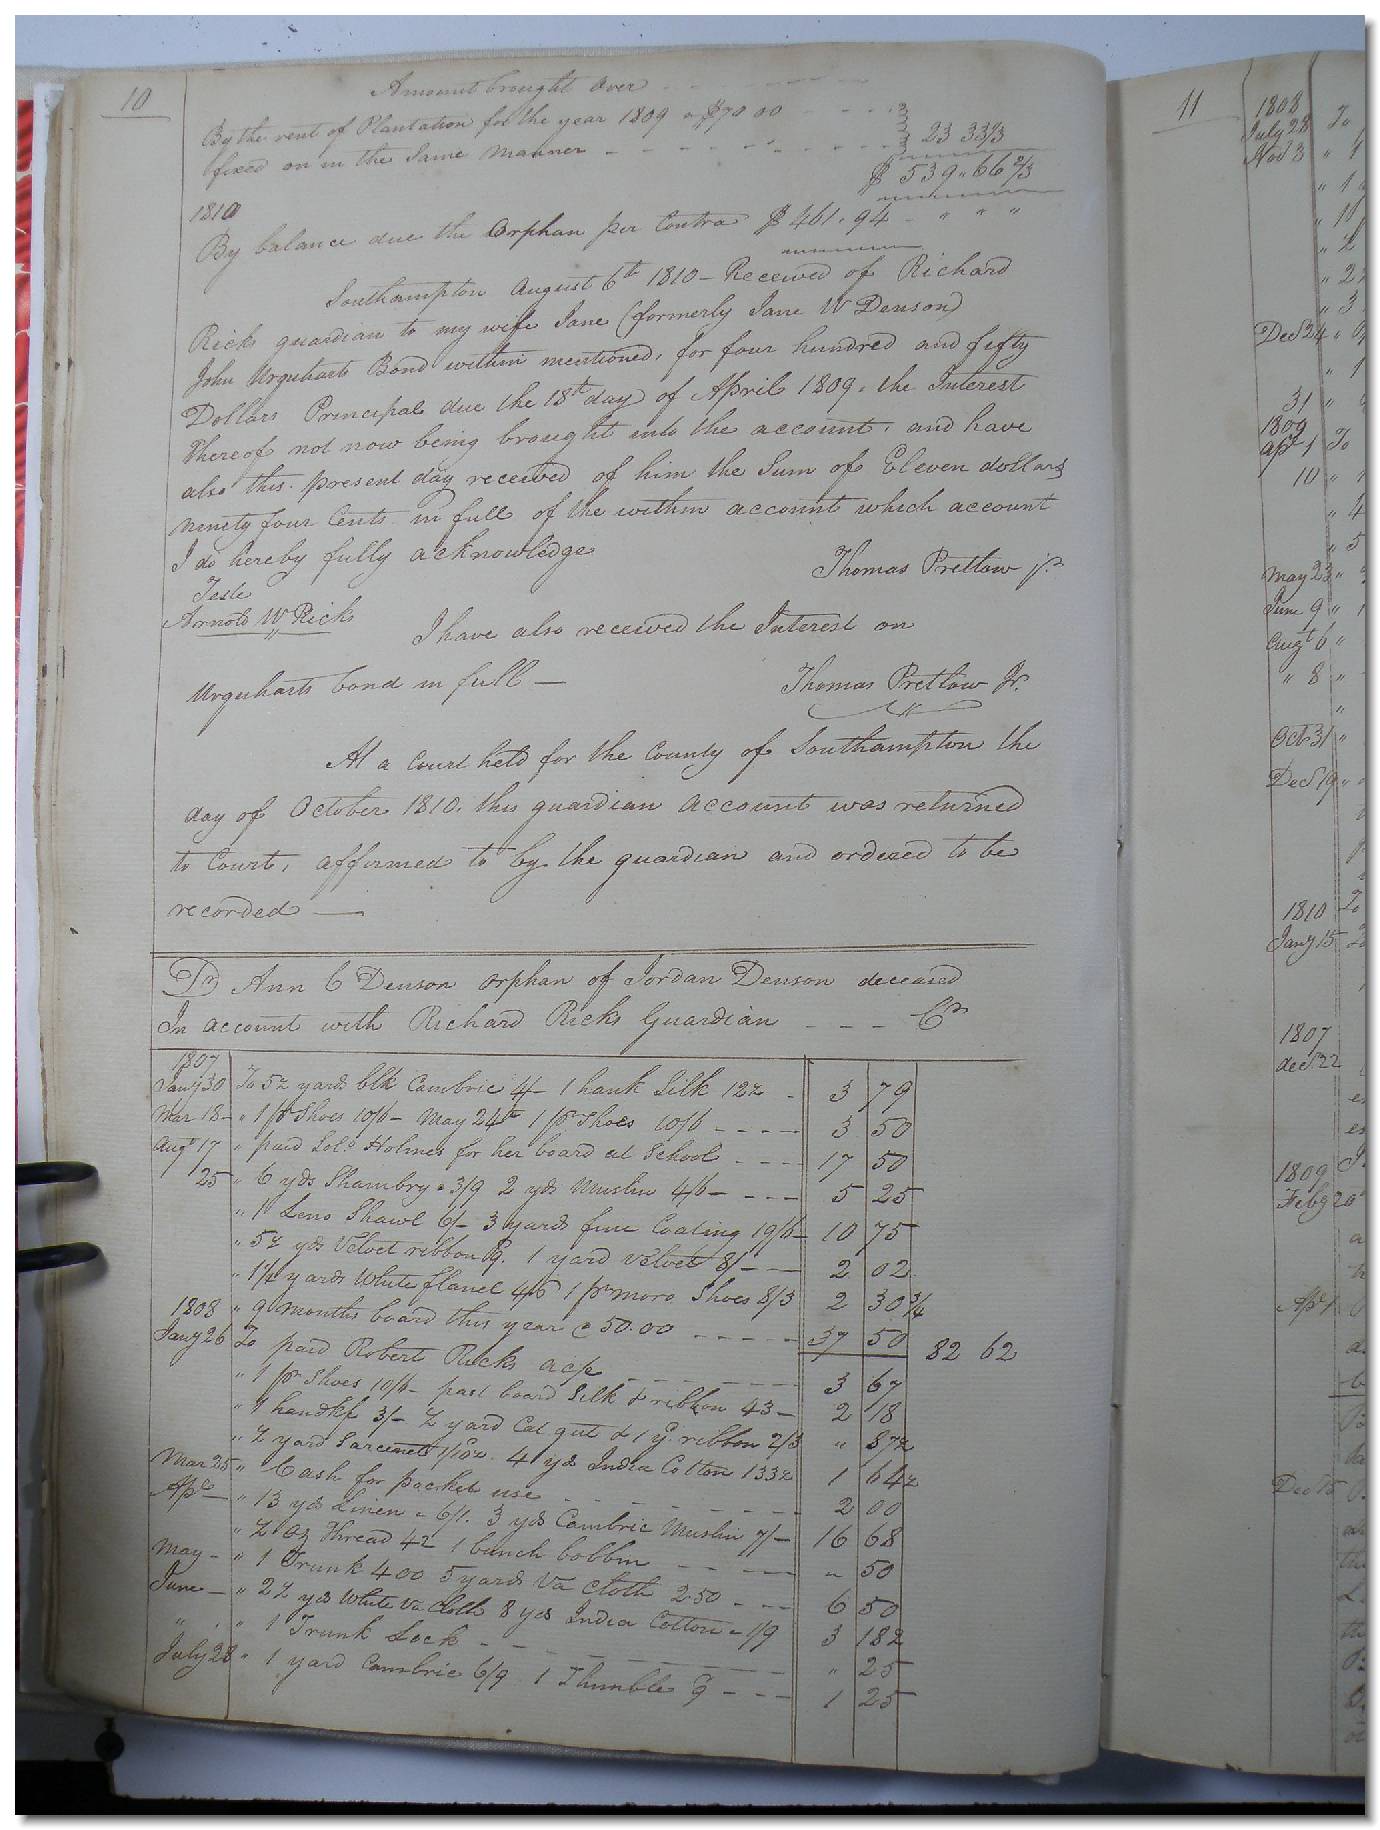 10
Amount brought over
By the rent of Plantation for the year 1809 a $70 00
fixed on in the Same manner 23 33⅓
$ 539 " 66⅔
1810
By balance due the Orphan per Contra $ 461 . 94 " " "
Southampton August 6th 1810 – Received of Richard
Ricks guardian to my wife Jane (formerly Jane W Denson)
John Urquharts Bond within mentioned, for four hundred and fifty
Dollars Principal due the 18th day of April 1809, the Interest
thereof not now being brought into the account, and have
also this present day received of him the Sum of Eleven dollars
ninety four Cents in full of the within account which account
I do hereby fully acknowledge
Thomas Pretlow jr
Teste
Arnold W Ricks
I have also received the Interest on
Urquharts bond in full —
Thomas Pretlow Jr.
At a Court held for the County of Southampton the
day of October 1810, this guardian account was returned
to Court, affirmed to by the guardian and ordered to be
recorded —
Dr Ann C Denson orphan of Jordan Denson deceased
In account with Richard Ricks Guardian Cr
1807
Jany 30 To 5½ yards blk Cambric 4/– 1 hank Silk 12½ 3 79
Mar 18 – " 1 pr Shoes 10/6 – May 24th 1 pr Shoes 10/6 3 50
Augt 17 " paid Solo Holmes for her board at School 17 50
25 " 6 yds Shambry a 3/9 2 yds Muslin 4/6 – 5 25
" 1 Leno Shawl 6/– 3 yards fine Coating 19/6 – 10 75
" 5½ yds Velvet ribbon 1 yard velvet 8/– 2 02
" 1½ yards White flanel 4/6 1 pr moro Shoes 8/3 2 30¾
" 9 months board this year @ 50.00 37 50 82 62
1808
Jany 26 To paid Robert Ricks acp 3 67
" 1 pr Shoes 10/6 – past board Silk & ribbon 43 – 2 18
" 1 handkf 3/– ½ yard Cat gut & 1 y. ribbon 2/3 " 87½
" ½ yard Sarcenett 1/10½ . 4 yds India Cotton 133½ 1 64½
Mar 25 " Cash for pocket use 2 00
Apl – " 13 yds Linen a 6/. 3 yds Cambric Muslin 7/– 16 68
" ½ oz Thread 42 1 bunch bobbin " 50
May – " 1 Trunk 4 00 5 yards Va Cloth 2.50 6 50
June – " 2½ yds White Va Cloth 8 yds India Cotton a 1/9 3 18½
" " 1 Trunk Lock " 25
July 28 " 1 yard Cambric 6/9 1 Thimble 9 1 25
11
1808
July 28 To
Nov 3 " 1
" 1
" 11
" 2
" 2
" 3
Decr 24 "
" 1
31 "
1809
Apl 1 To
10 "
" 4
" 5
May 23 "
June 9 " 1
Augt 6 "
" 8 "
"
Oct 31 "
Decr 19 "
1810 To
Jany 15
1807
decr 22
1809
Feby 20
Apl 1
Dec 15